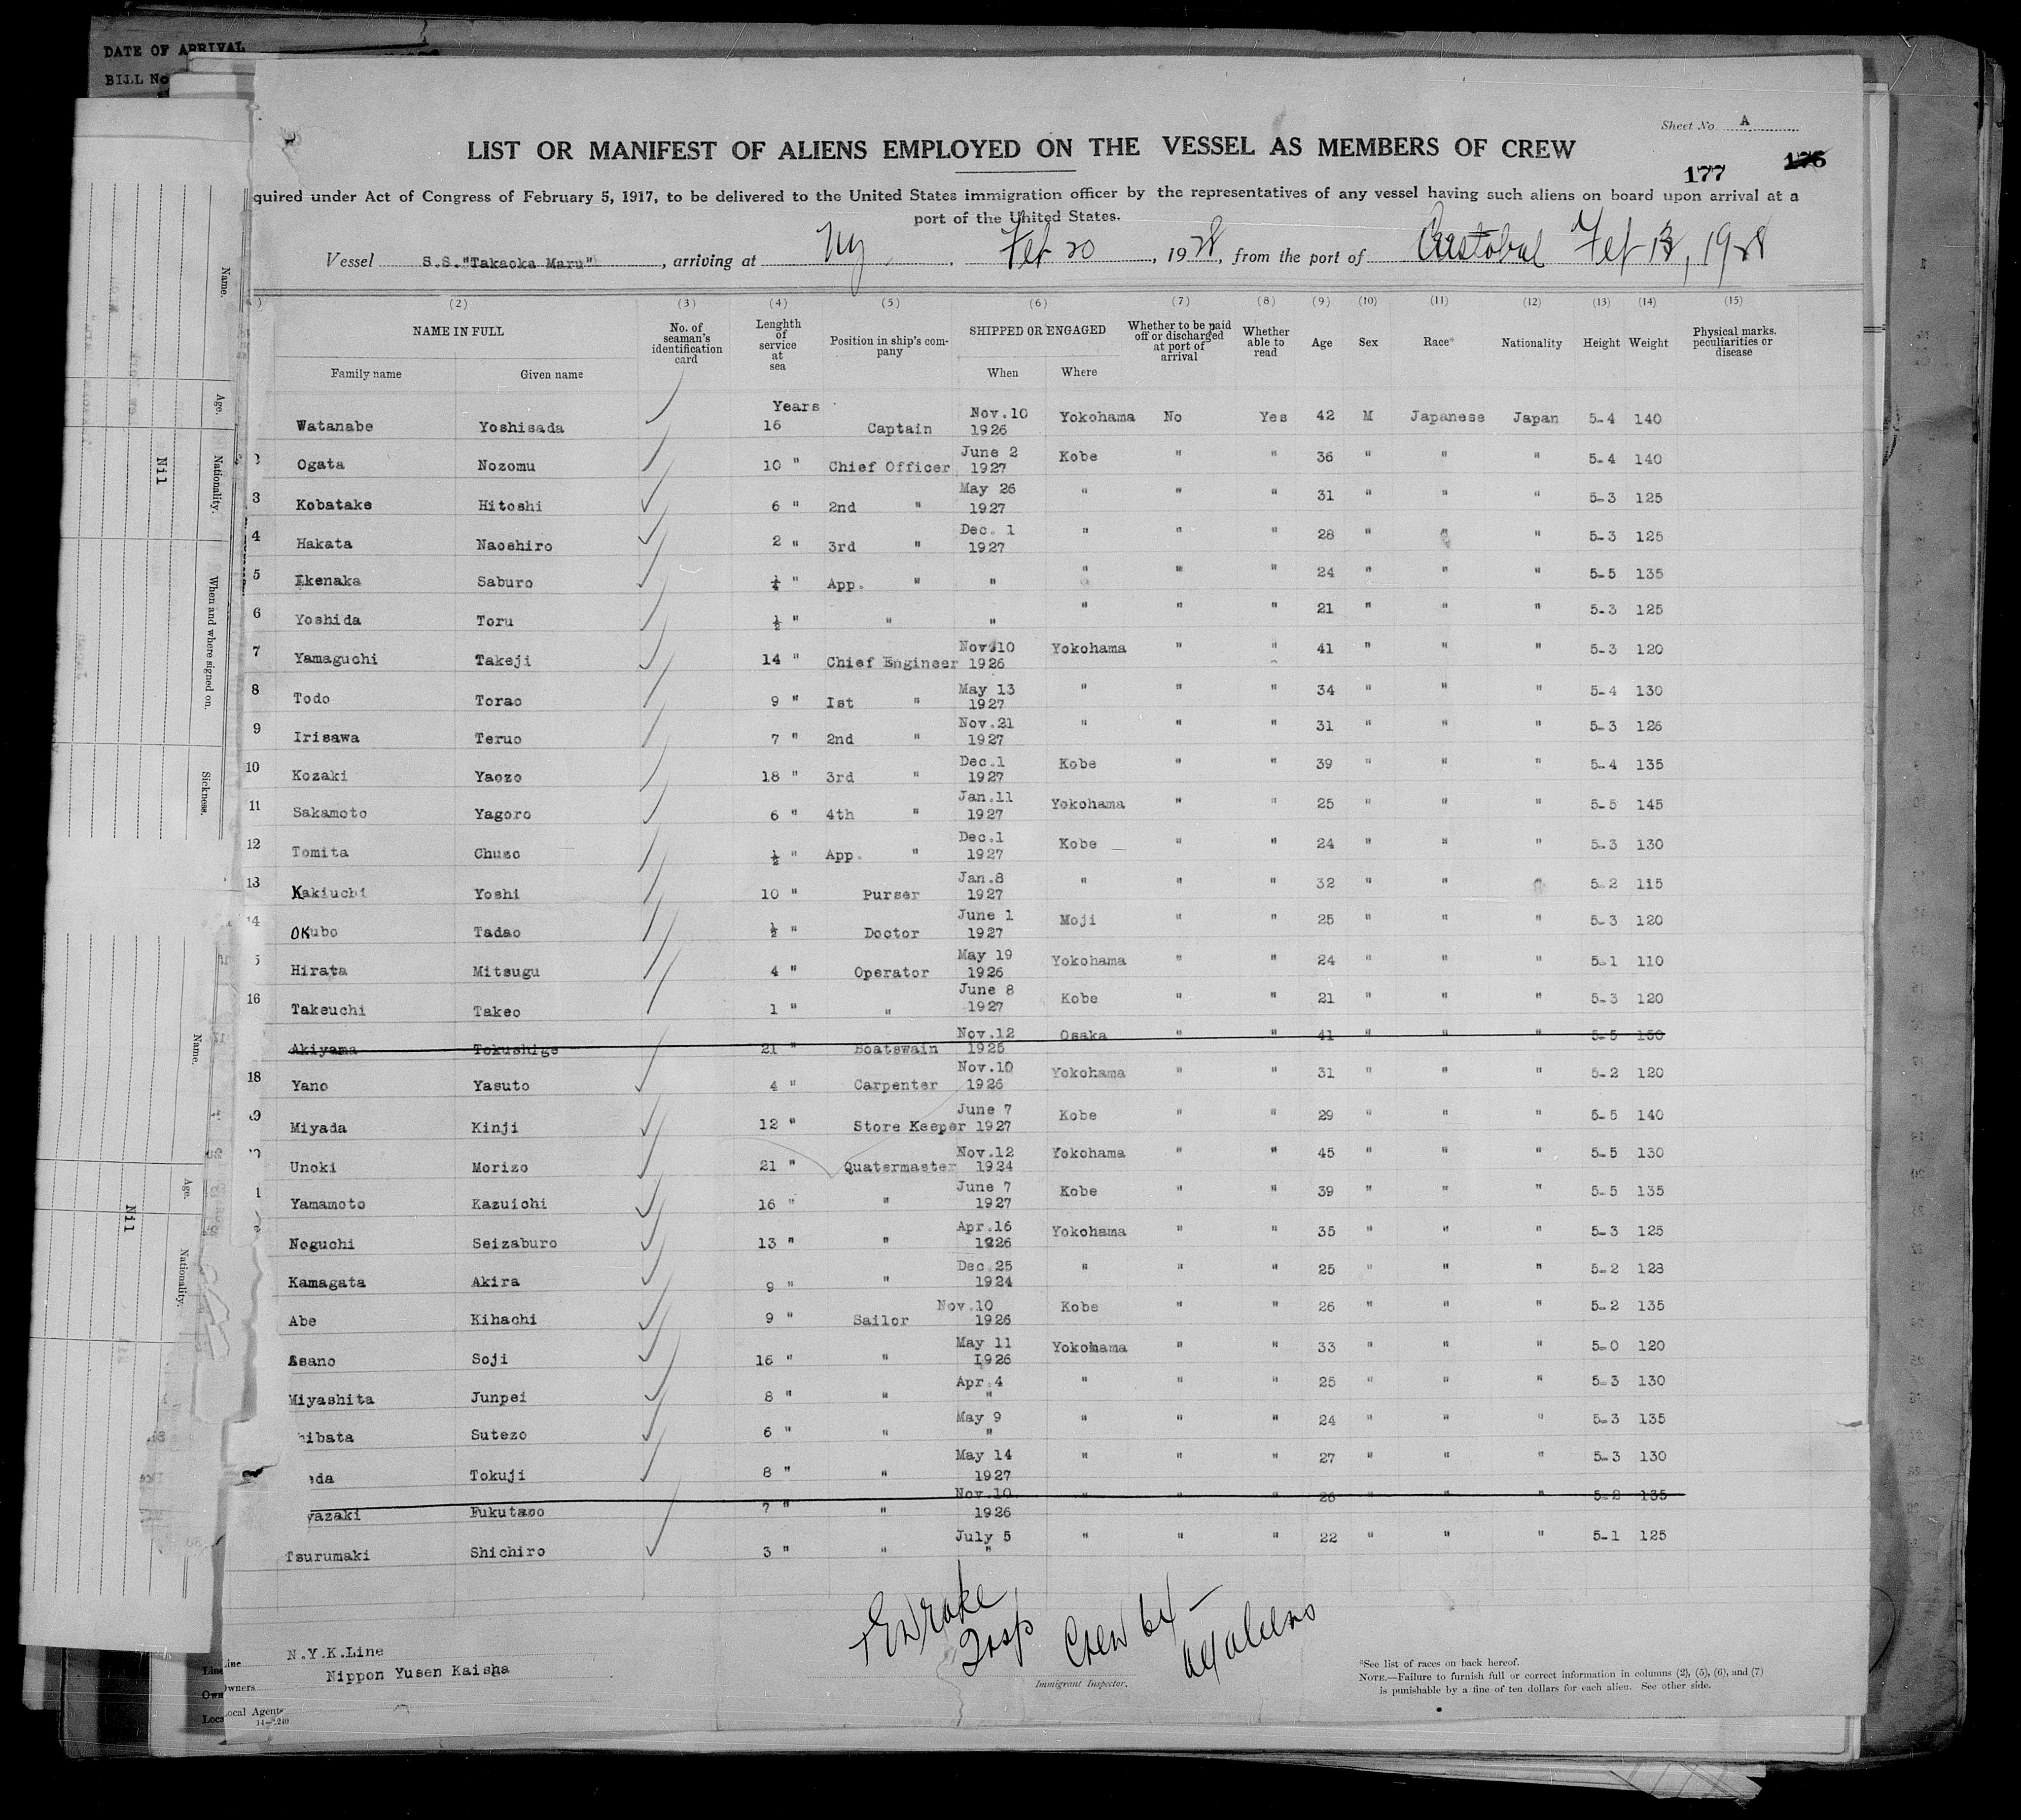 DATE OF ARRIVAL
BILL No
Sheet No. A
LIST OR MANIFEST OF ALIENS EMPLOYED ON THE VESSEL AS MEMBERS OF CREW
177 176
quired under Act of Congress of February 5, 1917, to be delivered to the United States immigration officer by the representatives of any vessel having such aliens on board upon arrival at a
port of the United States.
Vessel S.S."Takaoka Maru", arriving at Ny, Feb 20, 1928, from the port of Cristobal Feb 13, 1928
(2) (3) (4) (5) (6) (7) (8) (9) (10) (11) (12) (13) (14) (15)
NAME IN FULL No. of seaman's identification card Lenghth of service at sea Position in ship's company SHIPPED OR ENGAGED Whether to be paid off or discharged at port of arrival Whether able to read Age Sex Race* Nationality Height Weight Physical marks, peculiarities or disease
Family name Given name When Where
Watanabe Yoshisada 16 Years Captain Nov.10 1926 Yokohama No Yes 42 M Japanese Japan 5-4 140
Ogata Nozomu 10 " Chief Officer June 2 1927 Kobe " " 36 " " " 5-4 140
3 Kobatake Hitoshi 6 " 2nd " May 26 1927 " " " 31 " " " 5-3 125
4 Hakata Naoshiro 2 " 3rd " Dec. 1 1927 " " " 28 " " " 5-3 125
5 Ikenaka Saburo " App. " " " " " 24 " " " 5-5 135
6 Yoshida Toru ½ " " " " " " 21 " " " 5-3 125
7 Yamaguchi Takeji 14 " Chief Engineer Nov.10 1926 Yokohama " " 41 " " " 5-3 120
8 Todo Torao 9 " Ist " May 13 1927 " " " 34 " " " 5-4 130
9 Irisawa Teruo 7 " 2nd " Nov.21 1927 " " " 31 " " " 5-3 126
10 Kozaki Yaozo 18 " 3rd " Dec.1 1927 Kobe " " 39 " " " 5-4 135
11 Sakamoto Yagoro 6 " 4th " Jan.11 1927 Yokohama " " 25 " " " 5-5 145
12 Tomita Chuzo ½ " App. " Dec.1 1927 Kobe " " 24 " " " 5-3 130
13 Kakiuchi Yoshi 10 " Purser Jan.8 1927 " " " 32 " " " 5-2 115
14 Okubo Tadao ½ " Doctor June 1 1927 Moji " " 25 " " " 5-3 120
5 Hirata Mitsugu 4 " Operator May 19 1926 Yokohama " " 24 " " " 5-1 110
16 Takeuchi Takeo 1 " " June 8 1927 Kobe " " 21 " " " 5-3 120
Akiyama Tokushige 21 " Boatswain Nov.12 1925 Osaka " " 41 " " " 5-5 150
18 Yano Yasuto 4 " Carpenter Nov.10 1926 Yokohama " " 31 " " " 5-2 120
19 Miyada Kinji 12 " Store Keeper June 7 1927 Kobe " " 29 " " " 5-5 140
Unoki Morizo 21 " Quatermaster Nov.12 1924 Yokohama " " 45 " " " 5-5 130
1 Yamamoto Kazuichi 16 " " June 7 1927 Kobe " " 39 " " " 5-5 135
Noguchi Seizaburo 13 " " Apr.16 1926 Yokohama " " 35 " " " 5-3 125
Kamagata Akira 9 " " Dec.25 1924 " " " 25 " " " 5-2 128
Abe Kihachi 9 " Sailor Nov.10 1926 Kobe " " 26 " " " 5-2 135
Asano Soji 16 " " May 11 1926 Yokohama " " 33 " " " 5-0 120
Miyashita Junpei 8 " " Apr.4 " " " " 25 " " " 5-3 130
hibata Sutezo 6 " " May 9 " " " " 24 " " " 5-3 135
eda Tokuji 8 " " May 14 1927 " " " 27 " " " 5-3 130
yazaki Fukutaro 7 " " Nov.10 1926 " " " 26 " " " 5-2 135
Tsurumaki Shichiro 3 " " July 5 " " " " 22 " " " 5-1 125
Drake
Insp
Crew 64 —
all aliens
Immigrant Inspector.
Line N.Y.K.Line
Owners Nippon Yusen Kaisha
Local Agents
14—1240
*See list of races on back hereof.
NOTE.—Failure to furnish full or correct information in columns (2), (5), (6), and (7)
is punishable by a fine of ten dollars for each alien. See other side.
Name.
Age.
Nationality.
Nil
When and where signed on.
Sickness.
Name.
Age.
Nil
Nationality.